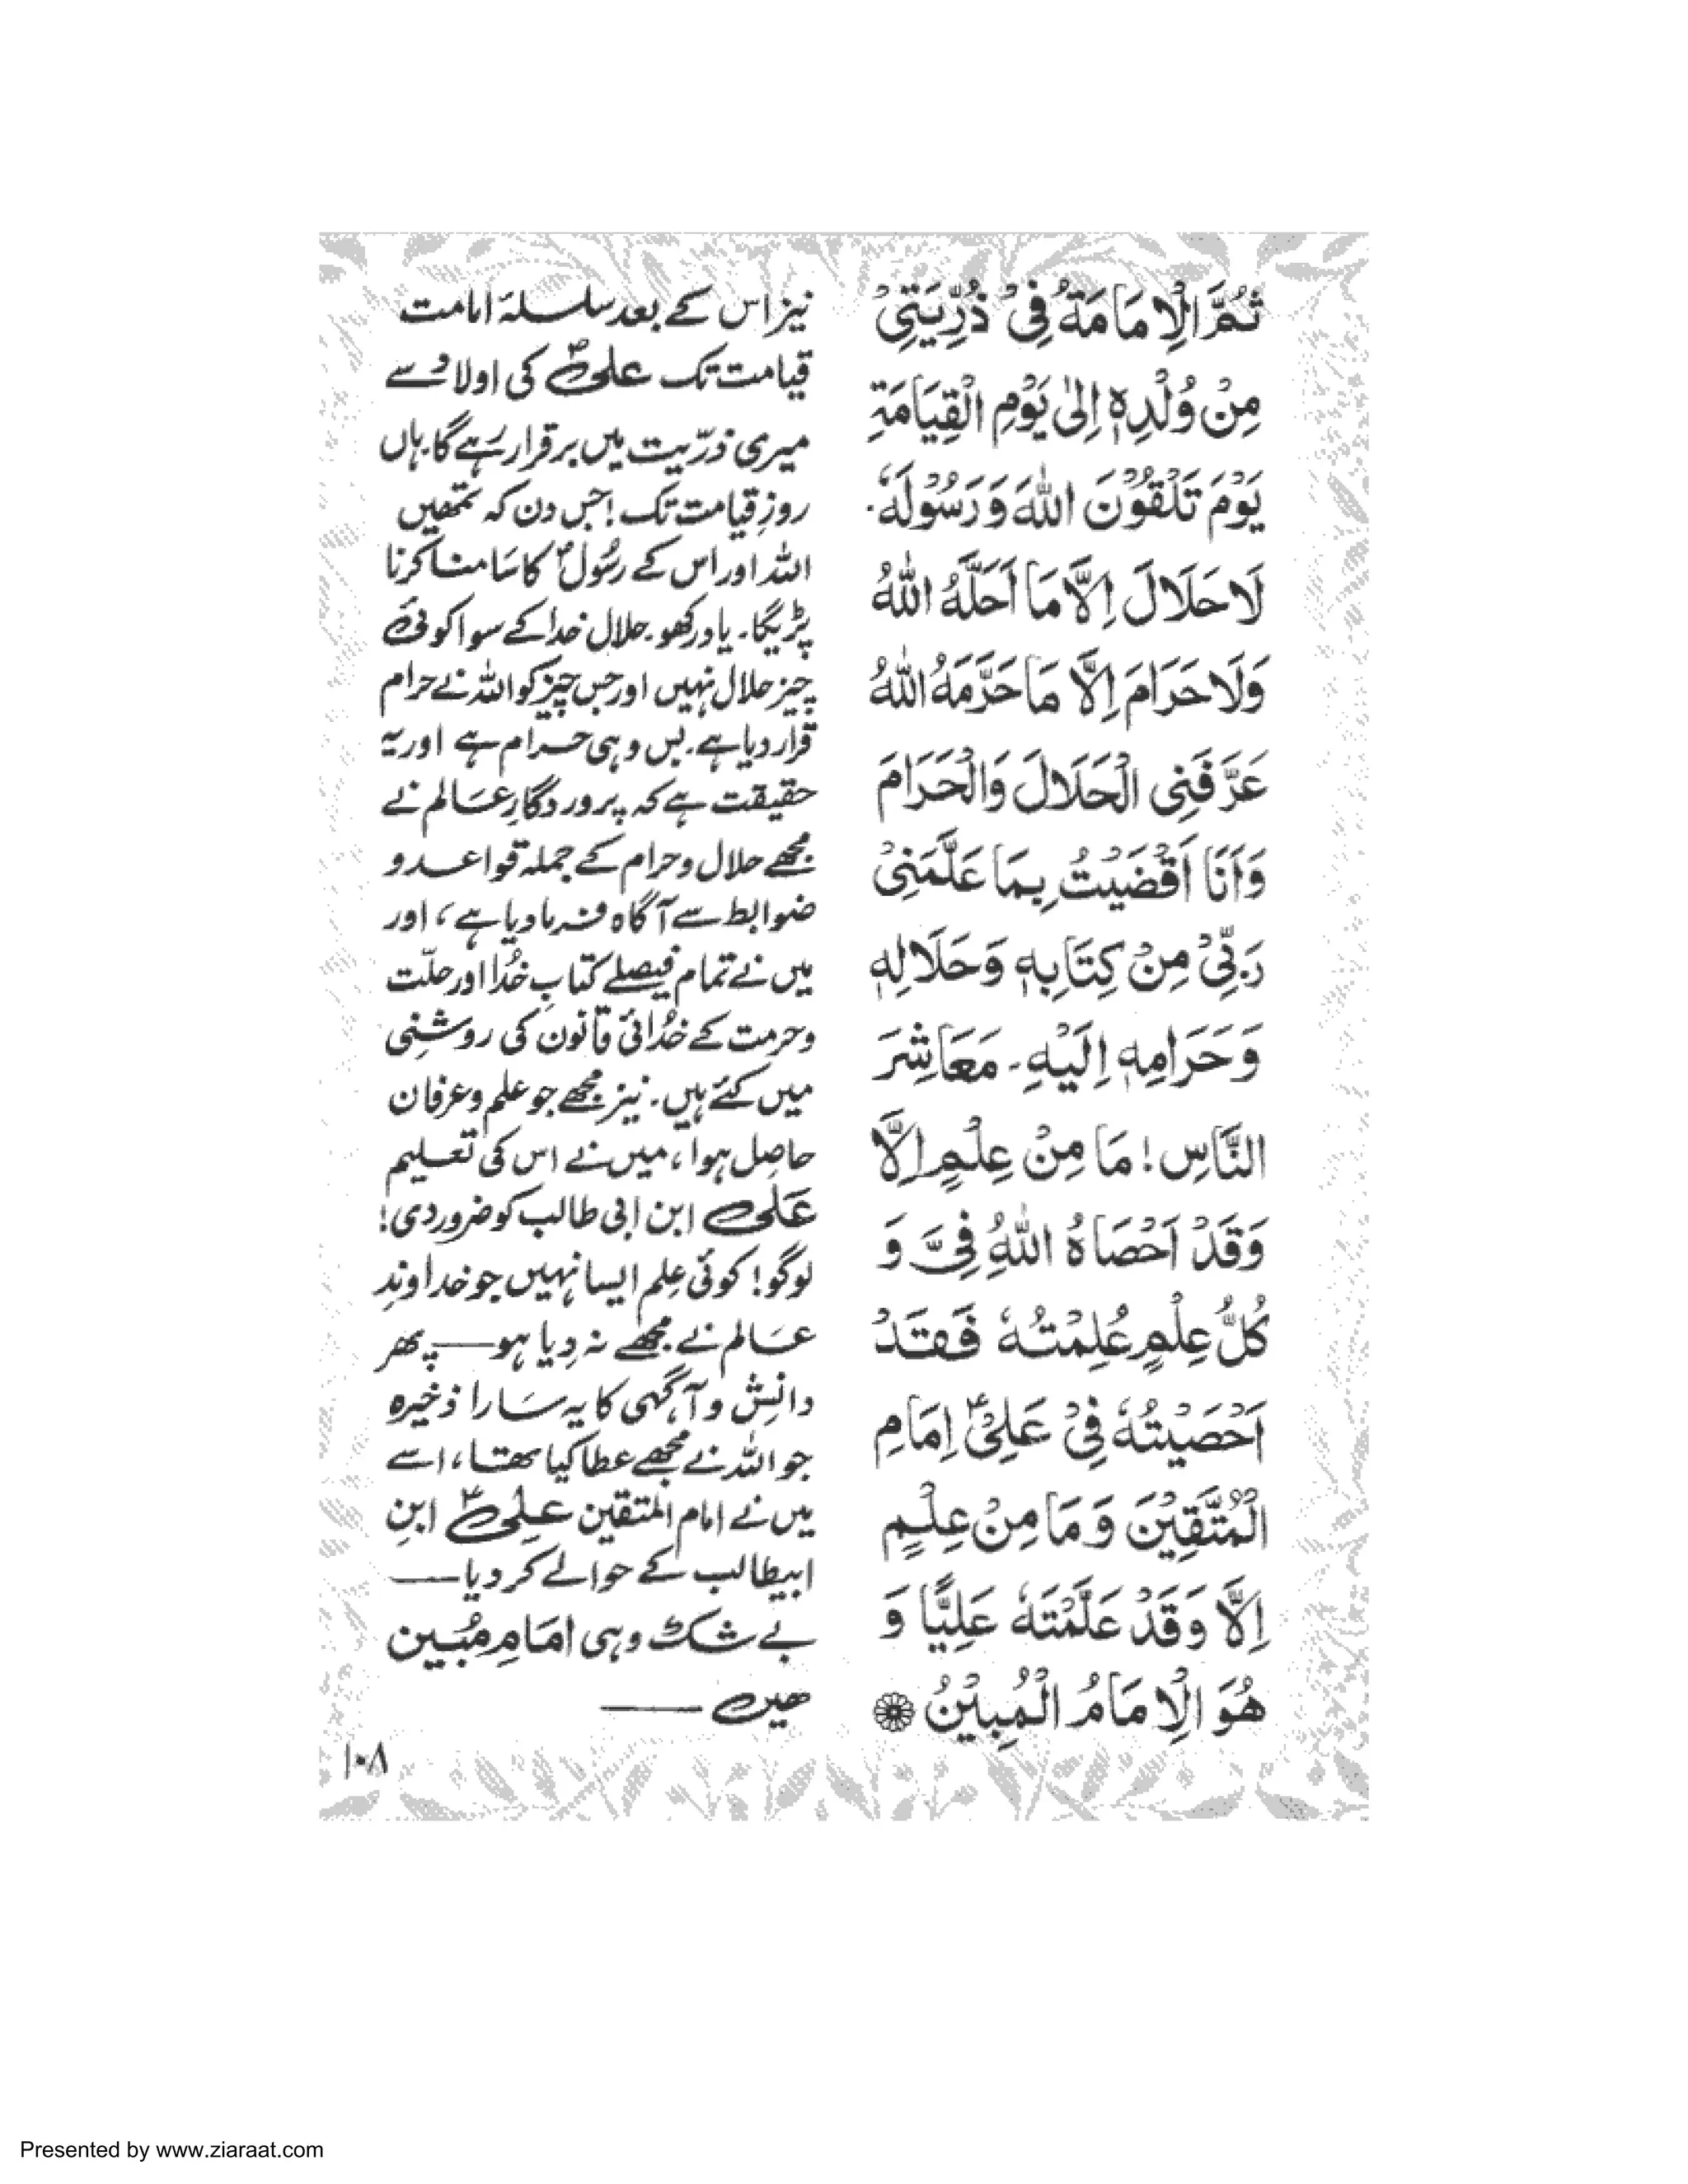 ثُمَّ الْاِمَامَةُ فِیْ ذُرِّیَتِیْ
مِنْ وُلْدِہٖ اِلٰی یَوْمِ الْقِیَامَةِ
یَوْمَ تَلْقَوْنَ اللّٰهَ وَرَسُوْلَهٗ۔
لَا حَلَالَ اِلَّا مَا اَحَلَّهُ اللّٰهُ
وَلَا حَرَامَ اِلَّا مَا حَرَّمَهُ اللّٰهُ
عَرَّفَنِی الْحَلَالَ وَالْحَرَامَ
وَاَنَا اَفْضَیْتُ بِمَا عَلَّمَنِیْ
رَبِّیْ مِنْ کِتَابِهٖ وَحَلَالِهٖ
وَحَرَامِهٖ اِلَیْهِ۔ مَعَاشِرَ
النَّاسِ! مَا مِنْ عِلْمٍ اِلَّا
وَقَدْ اَحْصَاهُ اللّٰهُ فِیَّ وَ
کُلُّ عِلْمٍ عُلِمْتُهٗ فَقَدْ
اَحْصَیْتُهٗ فِیْ عَلِیٍّؑ اِمَامِ
الْمُتَّقِیْنَ وَمَا مِنْ عِلْمٍ
اِلَّا وَقَدْ عَلَّمْتُهٗ عَلِیًّا وَ
هُوَ الْاِمَامُ الْمُبِیْنُ
نیز اس کے بعد سلسلۂ امامت
قیامت تک علیؑ کی اولاد سے
میری ذرّیت میں برقرار رہے گا۔ ہاں
روزِ قیامت تک! جس دن کہ تمھیں
اللہ اور اس کے رسُولؐ کا سَامنا کرنا
پڑیگا۔ یاد رکھو۔ حلال خدا کے سوا کوئی
چیز حلال نہیں اور جس چیز کو اللہ نے حرام
قرار دیا ہے۔ بس وہی حرام ہے اور یہ
حقیقت ہے کہ پروردگارِ عَالم نے
مجھے حلال و حرام کے جملہ قواعد و
ضوابط سے آگاہ فرما دیا ہے، اور
میں نے تمام فیصلے کتابِ خُدا اور حلّت
و حرمت کے خُدائی قانون کی روشنی
میں کئے ہیں۔ نیز مجھے جو علم و عرفان
حاصِل ہوا، میں نے اس کی تعلیم
عَلی ابن ابی طالب کو ضرور دی!
لوگو! کوئی عِلم ایسا نہیں جو خداوندِ
عَالم نے مجھے نہ دِیا ہو — پھر
دانِش و آگہی کا یہ سَارا ذخیرہ
جو اللہ نے مجھے عطا کیا تھا، اسے
میں نے امام المتقین عَلِیؑ ابنِ
ابیطالب کے حوالے کر دیا —
بے شک وہی امَامِ مُبین
ھیں —
۱۰۸
Presented by www.ziaraat.com